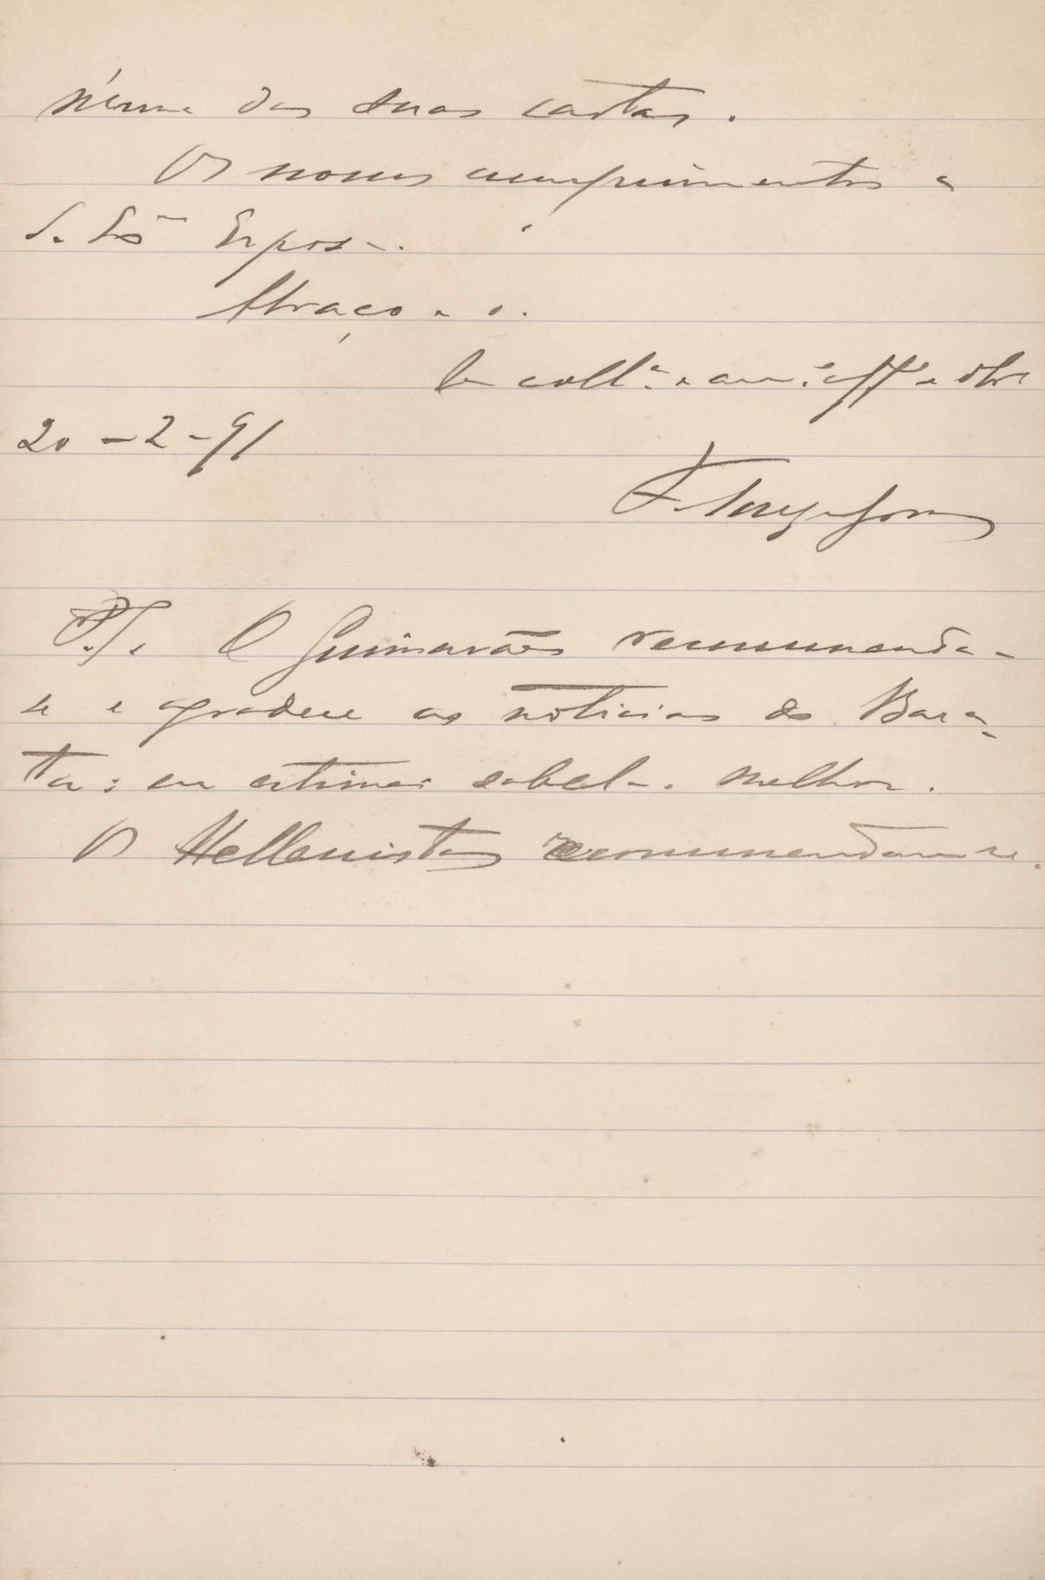 das suas cartas.
Os nossos cumprimentos a
S. Ex.ª Esposa.
Abraço-o.
coll.ª e am.º aff.º e obr.
20-2-91
P.S. O Guimarães recommenda-
se e agradece as noticias do Bara-
ta: eu estimei sabel-o melhor.
Os Hellenistas recommendam-se.